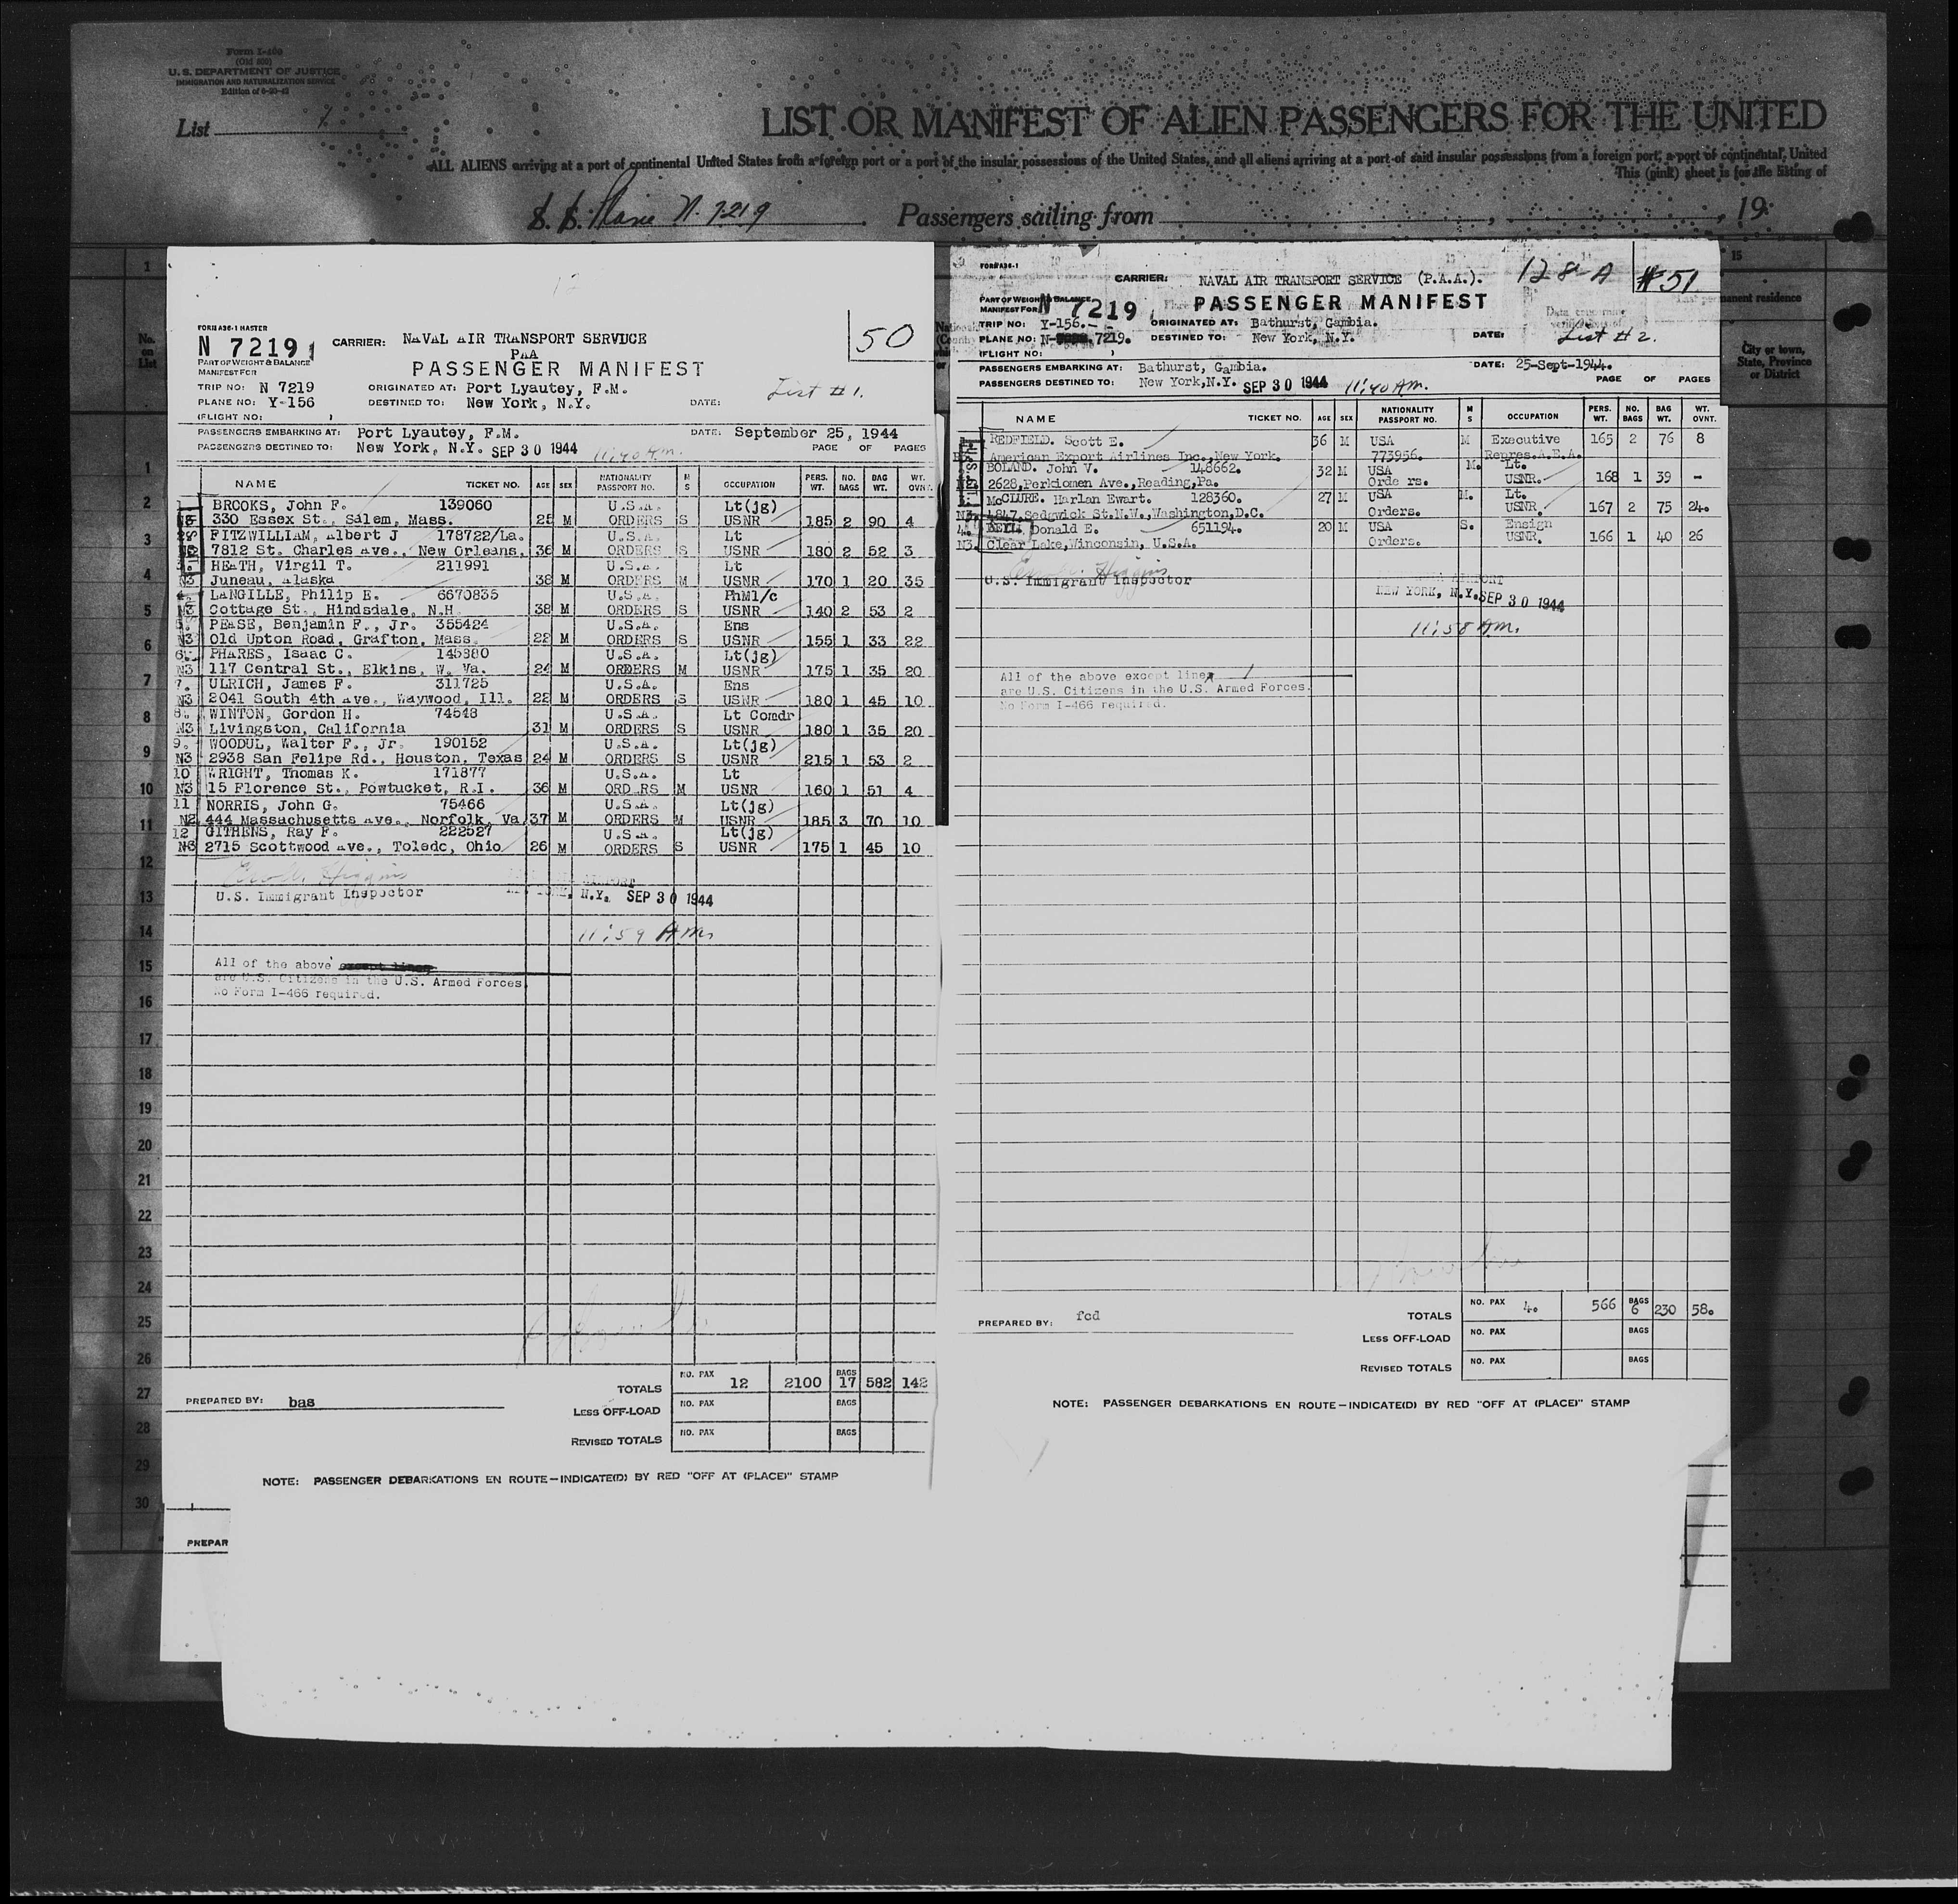 Form I-466
(Old 500)
U. S. DEPARTMENT OF JUSTICE
IMMIGRATION AND NATURALIZATION SERVICE
List
LIST OR MANIFEST OF ALIEN PASSENGERS FOR THE UNITED
ALL ALIENS arriving at a port of continental United States from a foreign port or a port of the insular possessions of the United States, and all aliens arriving at a port of said insular possessions from a foreign port, a port of continental United
This (pink) sheet is for the listing of
S. S. Plane N. 7219 Passengers sailing from , , 19
50
FORM A36-1 MASTER
N 7219
PART OF WEIGHT & BALANCE
MANIFEST FOR
CARRIER: NAVAL AIR TRANSPORT SERVICE
PAA
PASSENGER MANIFEST
TRIP NO: N 7219 ORIGINATED AT: Port Lyautey, F.M. List #1.
PLANE NO: Y-156 DESTINED TO: New York, N.Y. DATE:
(FLIGHT NO: )
PASSENGERS EMBARKING AT: Port Lyautey, F.M. DATE: September 25, 1944
PASSENGERS DESTINED TO: New York, N.Y. SEP 30 1944 11:40 A.m. PAGE OF PAGES
NAME TICKET NO. AGE SEX NATIONALITY PASSPORT NO. M S OCCUPATION PERS. WT. NO. BAGS BAG WT. WT. OVNT.
BROOKS, John F. 139060 U.S.A. Lt(jg)
330 Essex St., Salem, Mass. 25 M ORDERS S USNR 185 2 90 4
FITZWILLIAM, Albert J 178722/La. U.S.A. Lt
7812 St. Charles Ave., New Orleans, 36 M ORDERS S USNR 180 2 52 3
HEATH, Virgil T. 211991 U.S.A. Lt
N3 Juneau, Alaska 38 M ORDERS M USNR 170 1 20 35
LANGILLE, Philip E. 6670835 U.S.A. PhM1/c
N3 Cottage St., Hindsdale, N.H. 38 M ORDERS S USNR 140 2 53 2
PEASE, Benjamin F., Jr. 355424 U.S.A. Ens
N3 Old Upton Road, Grafton, Mass. 22 M ORDERS S USNR 155 1 33 22
6. PHARES, Isaac C. 145880 U.S.A. Lt(jg)
N3 117 Central St., Elkins, W. Va. 24 M ORDERS M USNR 175 1 35 20
7. ULRICH, James F. 311725 U.S.A. Ens
N3 2041 South 4th Ave., Waywood, Ill. 22 M ORDERS S USNR 180 1 45 10
8. WINTON, Gordon H. 74548 U.S.A. Lt Comdr
N3 Livingston, California 31 M ORDERS S USNR 180 1 35 20
9. WOODUL, Walter F., Jr. 190152 U.S.A. Lt(jg)
N3 2938 San Felipe Rd., Houston, Texas 24 M ORDERS S USNR 215 1 53 2
10 WRIGHT, Thomas K. 171877 U.S.A. Lt
N3 15 Florence St., Powtucket, R.I. 36 M ORD RS M USNR 160 1 51 4
11 NORRIS, John G. 75466 U.S.A. Lt(jg)
N2 444 Massachusetts Ave., Norfolk, Va 37 M ORDERS M USNR 185 3 70 10
12 GITHENS, Ray F. 222527 U.S.A. Lt(jg)
N3 2715 Scottwood Ave., Toledo, Ohio 26 M ORDERS S USNR 175 1 45 10
U.S. Immigrant Inspector N.Y. SEP 30 1944
11:59 A.m.
All of the above
are U.S. Citizens in the U.S. Armed Forces
No Form I-466 required.
TOTALS NO. PAX 12 2100 BAGS 17 582 142
PREPARED BY: bas
LESS OFF-LOAD NO. PAX BAGS
REVISED TOTALS NO. PAX BAGS
NOTE: PASSENGER DEBARKATIONS EN ROUTE—INDICATE(D) BY RED "OFF AT (PLACE)" STAMP
PREPAR
FORM A36-1
CARRIER: NAVAL AIR TRANSPORT SERVICE (P.A.A.). 128-A #51
PART OF WEIGHT & BALANCE
MANIFEST FOR N 7219 PASSENGER MANIFEST
TRIP NO: Y-156. ORIGINATED AT: Bathurst, Gambia.
PLANE NO: N- 7219. DESTINED TO: New York, N.Y. DATE: List #2.
(FLIGHT NO: )
PASSENGERS EMBARKING AT: Bathurst, Gambia. DATE: 25-Sept-1944.
PASSENGERS DESTINED TO: New York,N.Y. SEP 30 1944 11:40 A.m. PAGE OF PAGES
NAME TICKET NO. AGE SEX NATIONALITY PASSPORT NO. M S OCCUPATION PERS. WT. NO. BAGS BAG WT. WT. OVNT.
REDFIELD. Scott E. 36 M USA M Executive 165 2 76 8
American Export Airlines Inc.,New York. 773956. Repres.A.E.A.
BOLAND. John V. 148662. 32 M USA M. Lt.
2628,Perkiomen Ave.,Reading,Pa. Orde rs. USNR. 168 1 39 -
McCLURE. Harlan Ewart. 128360. 27 M USA M. Lt.
N3 4847.Sedgwick St.N.W.,Washington,D.C. Orders. USNR. 167 2 75 24.
Donald E. 651194. 20 M USA S. Ensign
N3. Clear Lake,Winconsin, U.S.A. Orders. USNR. 166 1 40 26
U.S. Immigrant Inspector
NEW YORK, N.Y. SEP 30 1944
11:58 A.m.
All of the above except line 1
are U.S. Citizens in the U.S. Armed Forces.
No Form I-466 required.
PREPARED BY: fcd
TOTALS NO. PAX 4. 566 BAGS 6 230 58.
LESS OFF-LOAD NO. PAX BAGS
REVISED TOTALS NO. PAX BAGS
NOTE: PASSENGER DEBARKATIONS EN ROUTE—INDICATE(D) BY RED "OFF AT (PLACE)" STAMP
15
manent residence
City or town,
State, Province
or District
No.
on
List
1
1
2
3
4
5
6
7
8
9
10
11
12
13
14
15
16
17
18
19
20
21
22
23
24
25
26
27
28
29
30